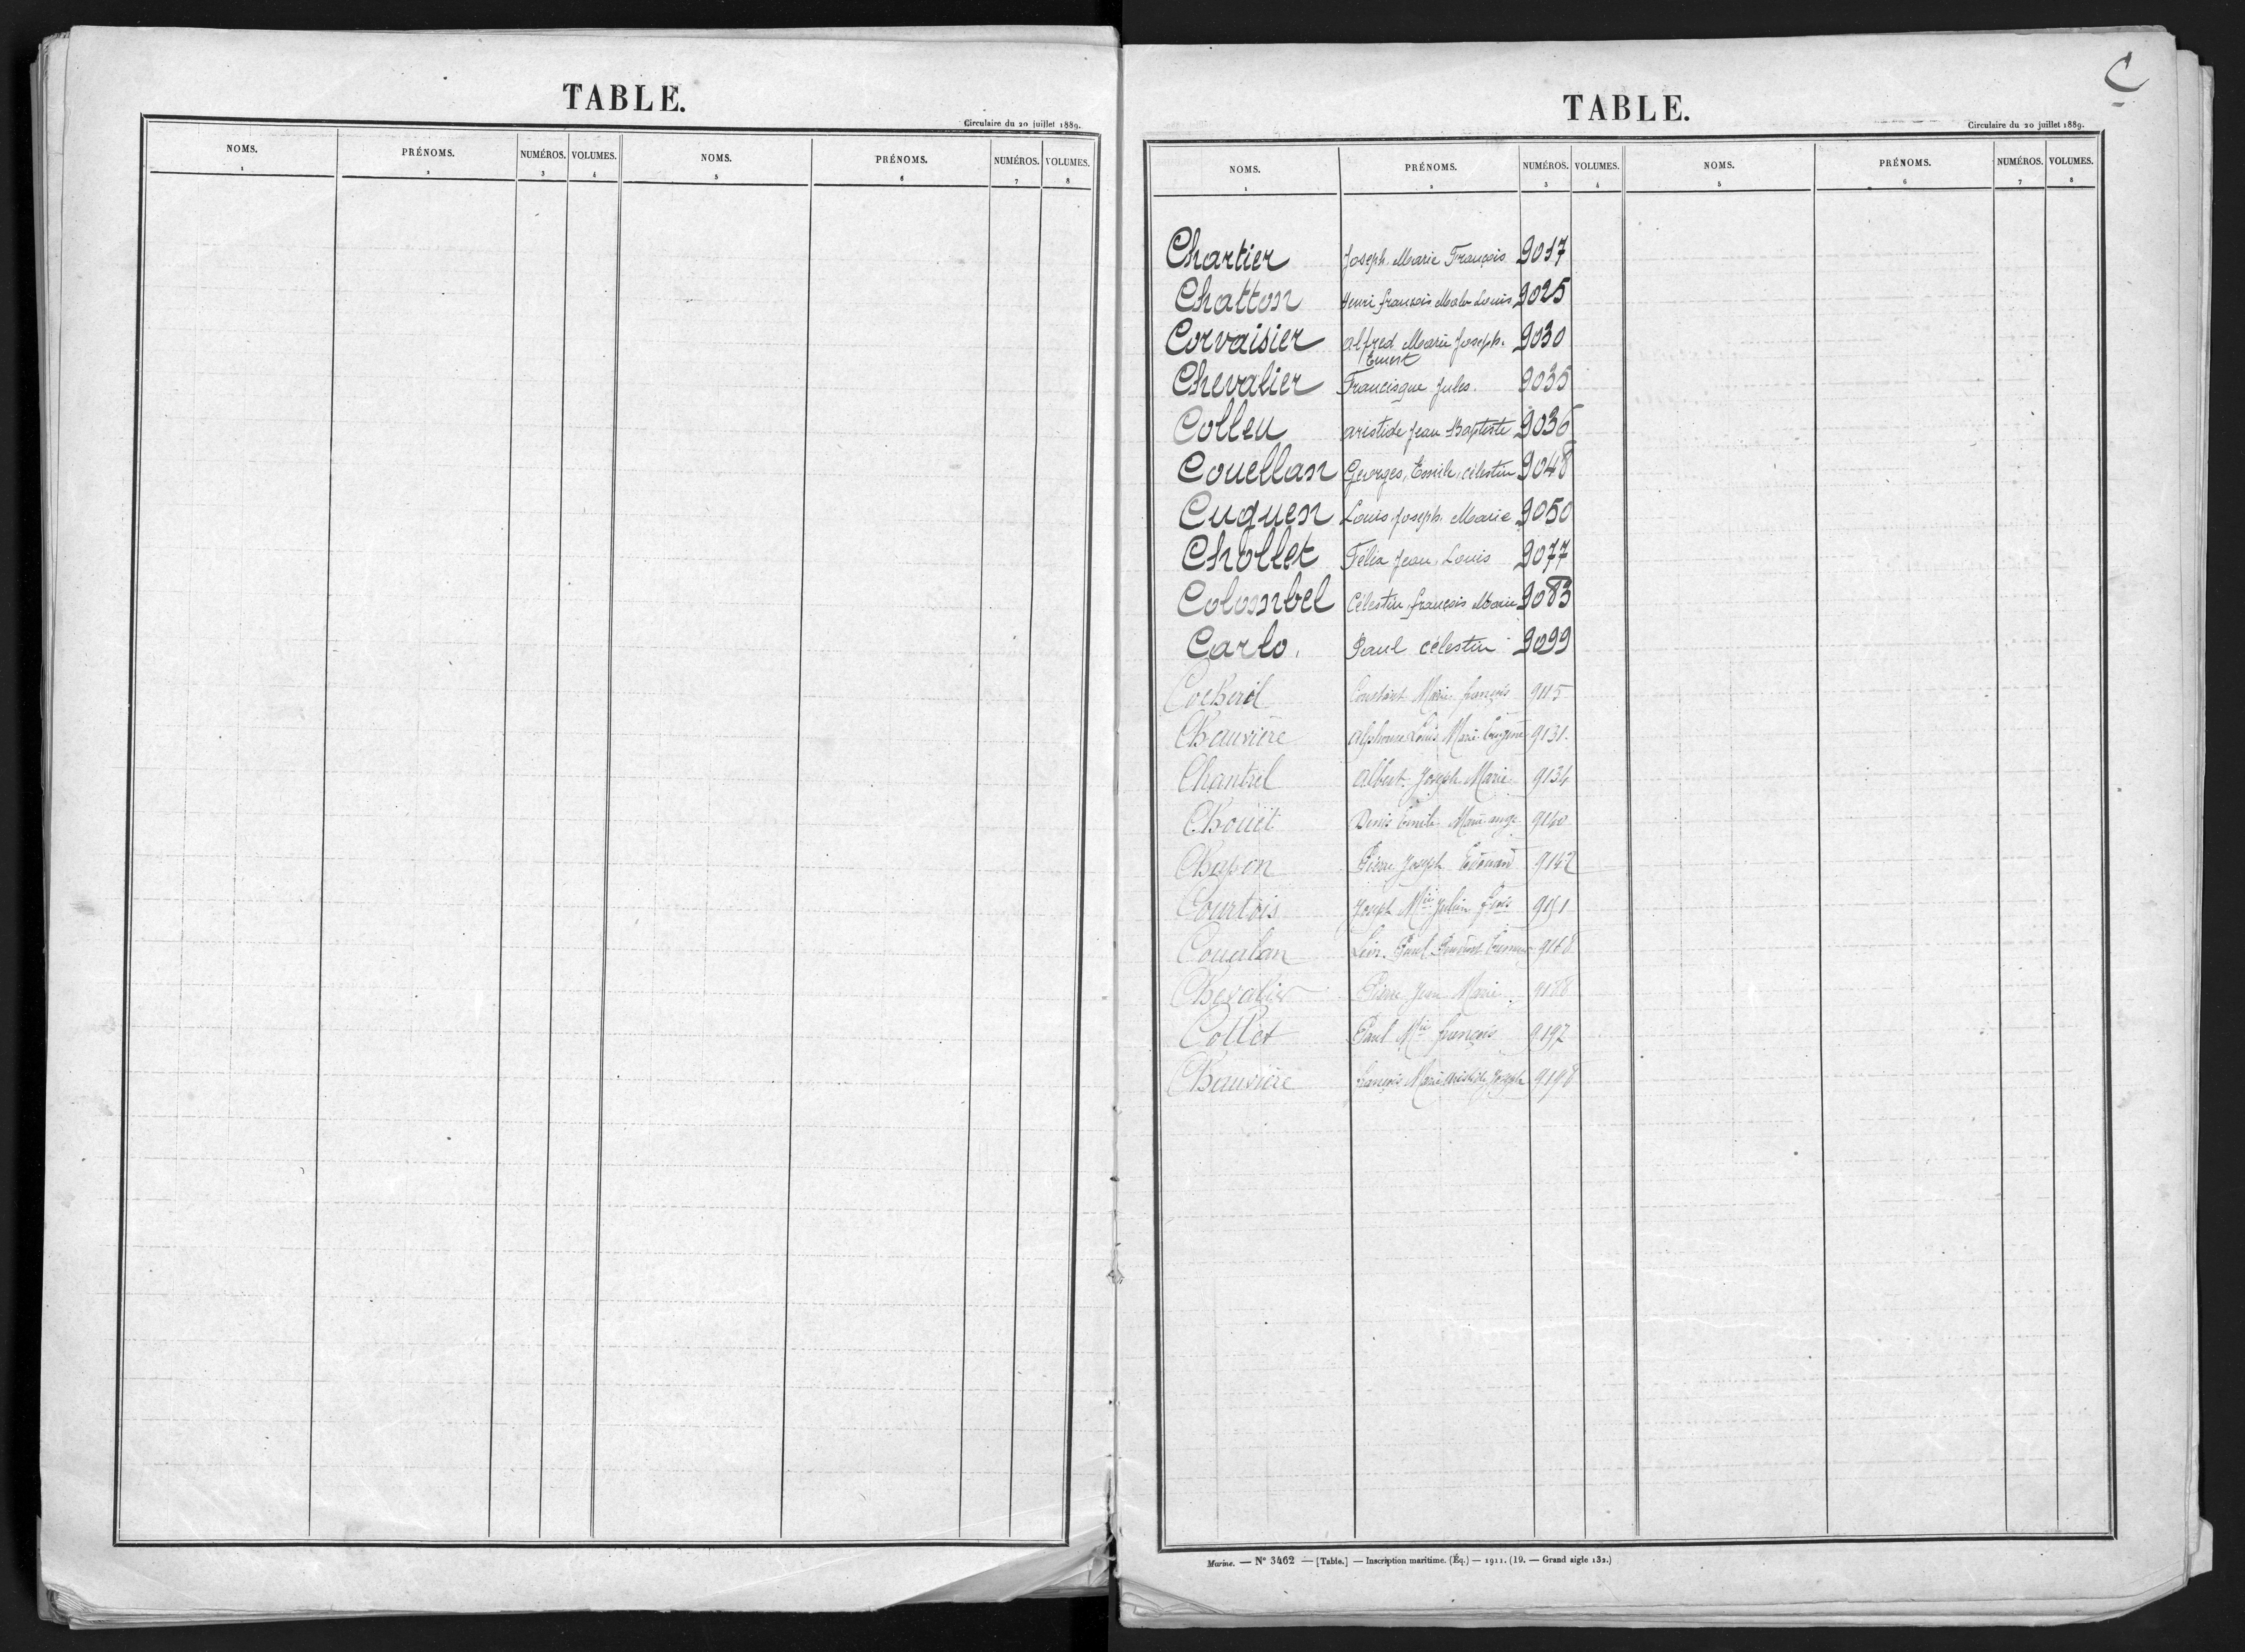 TABLE.
Circulaire du 20 juillet 1889.
NOMS. PRÉNOMS. NUMÉROS. VOLUMES. NOMS. PRÉNOMS. NUMÉROS. VOLUMES.
1 2 3 4 5 6 7 8
C
TABLE.
Circulaire du 20 juillet 1889.
NOMS. PRÉNOMS. NUMÉROS. VOLUMES. NOMS. PRÉNOMS. NUMÉROS. VOLUMES.
1 2 3 4 5 6 7 8
Chartier Joseph Marie François 9017
Chatton Henri françois Malo Louis 9025
Corvaisier alfred Marie Joseph. 9030
Ernest
Chevalier Francisque Jules. 9035
Colleu aristide Jean Baptiste 9036
Couellan Georges, Emile, célestin 9048
Cuguen Louis Joseph Marie 9050
Chollet Félix Jean Louis 9077
Colombel Célestin françois Marie 9083
Carlo. Paul célestin 9099
Cockeril Constant Marie françois 9115
Chauvière alphonse Louis Marie Eugène 9131.
Chantrel albert Joseph Marie 9134
Chouët Denis Emile Marie ange 9140
Chapon Pierre Joseph Edouard 9142
Courtois Joseph Mie Julien fois 9151
Coualan Léon Paul 9168
Chevalier Pierre Jean Marie 9188
Collet Paul Mie françois 9192
Chauvière françois Marie aristide Joseph 9198
Marine. — N° 3462 — [Table.] — Inscription maritime. (Éq.) — 1911. (19. — Grand aigle 132.)